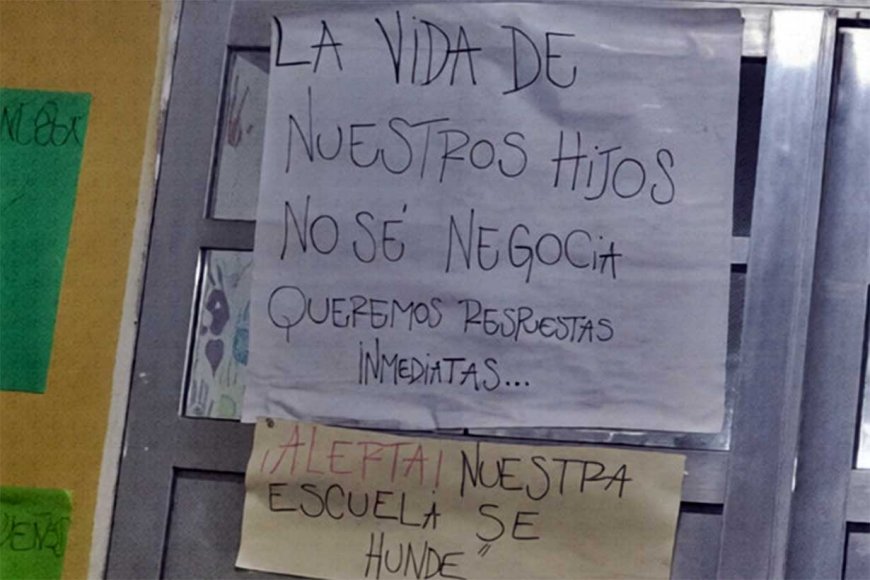 LA VIDA DE
NUESTROS HIJOS
NO SÉ NEGOCIA
QUEREMOS RESPUESTAS
INMEDIATAS...
¡ALERTA! NUESTRA
ESCUELA SE
HUNDE"